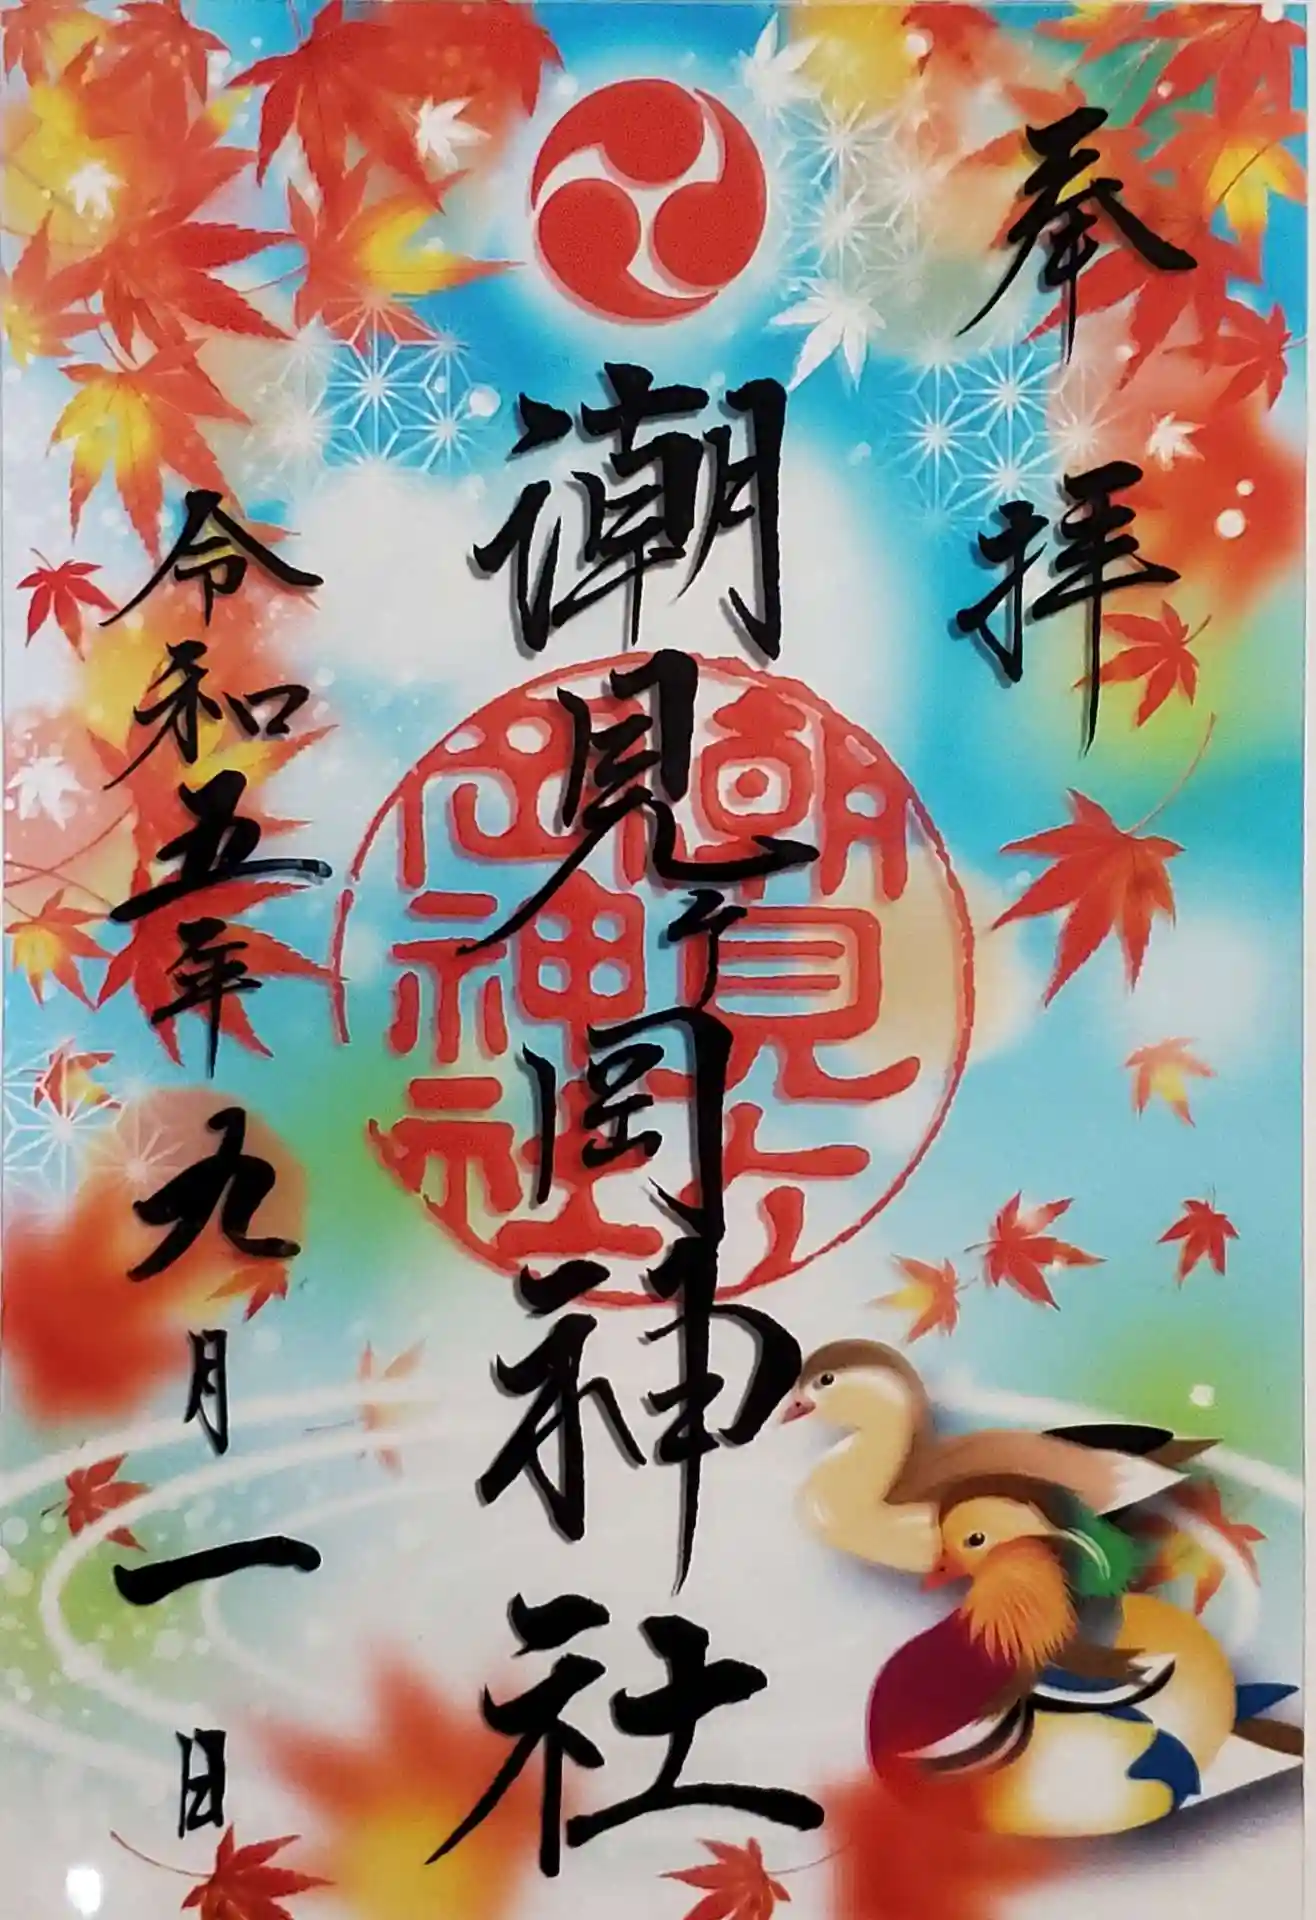 奉拝
潮見ケ岡神社
潮見ケ岡神社
令和五年九月一日